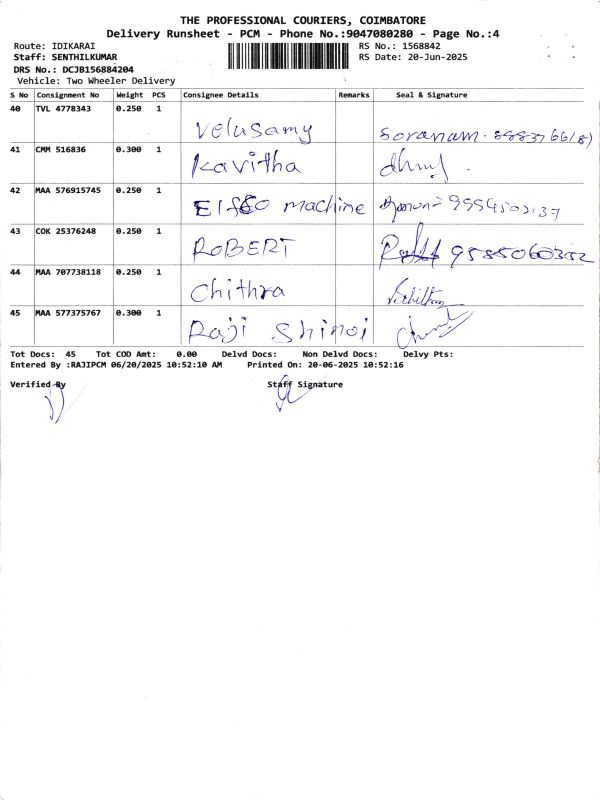 THE PROFESSIONAL COURIERS, COIMBATORE
Delivery Runsheet - PCM - Phone No.:9047080280 - Page No.:4
Route: IDIKARAI RS No.: 1568842
Staff: SENTHILKUMAR RS Date: 20-Jun-2025
DRS No.: DCJB156884204
Vehicle: Two Wheeler Delivery
S No Consignment No Weight PCS Consignee Details Remarks Seal & Signature
40 TVL 4778343 0.250 1
Velusamy
41 CMM 516836 0.300 1
Kavitha
42 MAA 576915745 0.250 1
machine
43 COK 25376248 0.250 1
ROBERT
44 MAA 707738118 0.250 1
Chithra
45 MAA 577375767 0.300 1
Raji Shinoi
Tot Docs: 45 Tot COD Amt: 0.00 Delvd Docs: Non Delvd Docs: Delvy Pts:
Entered By :RAJIPCM 06/20/2025 10:52:10 AM Printed On: 20-06-2025 10:52:16
Verified By Staff Signature